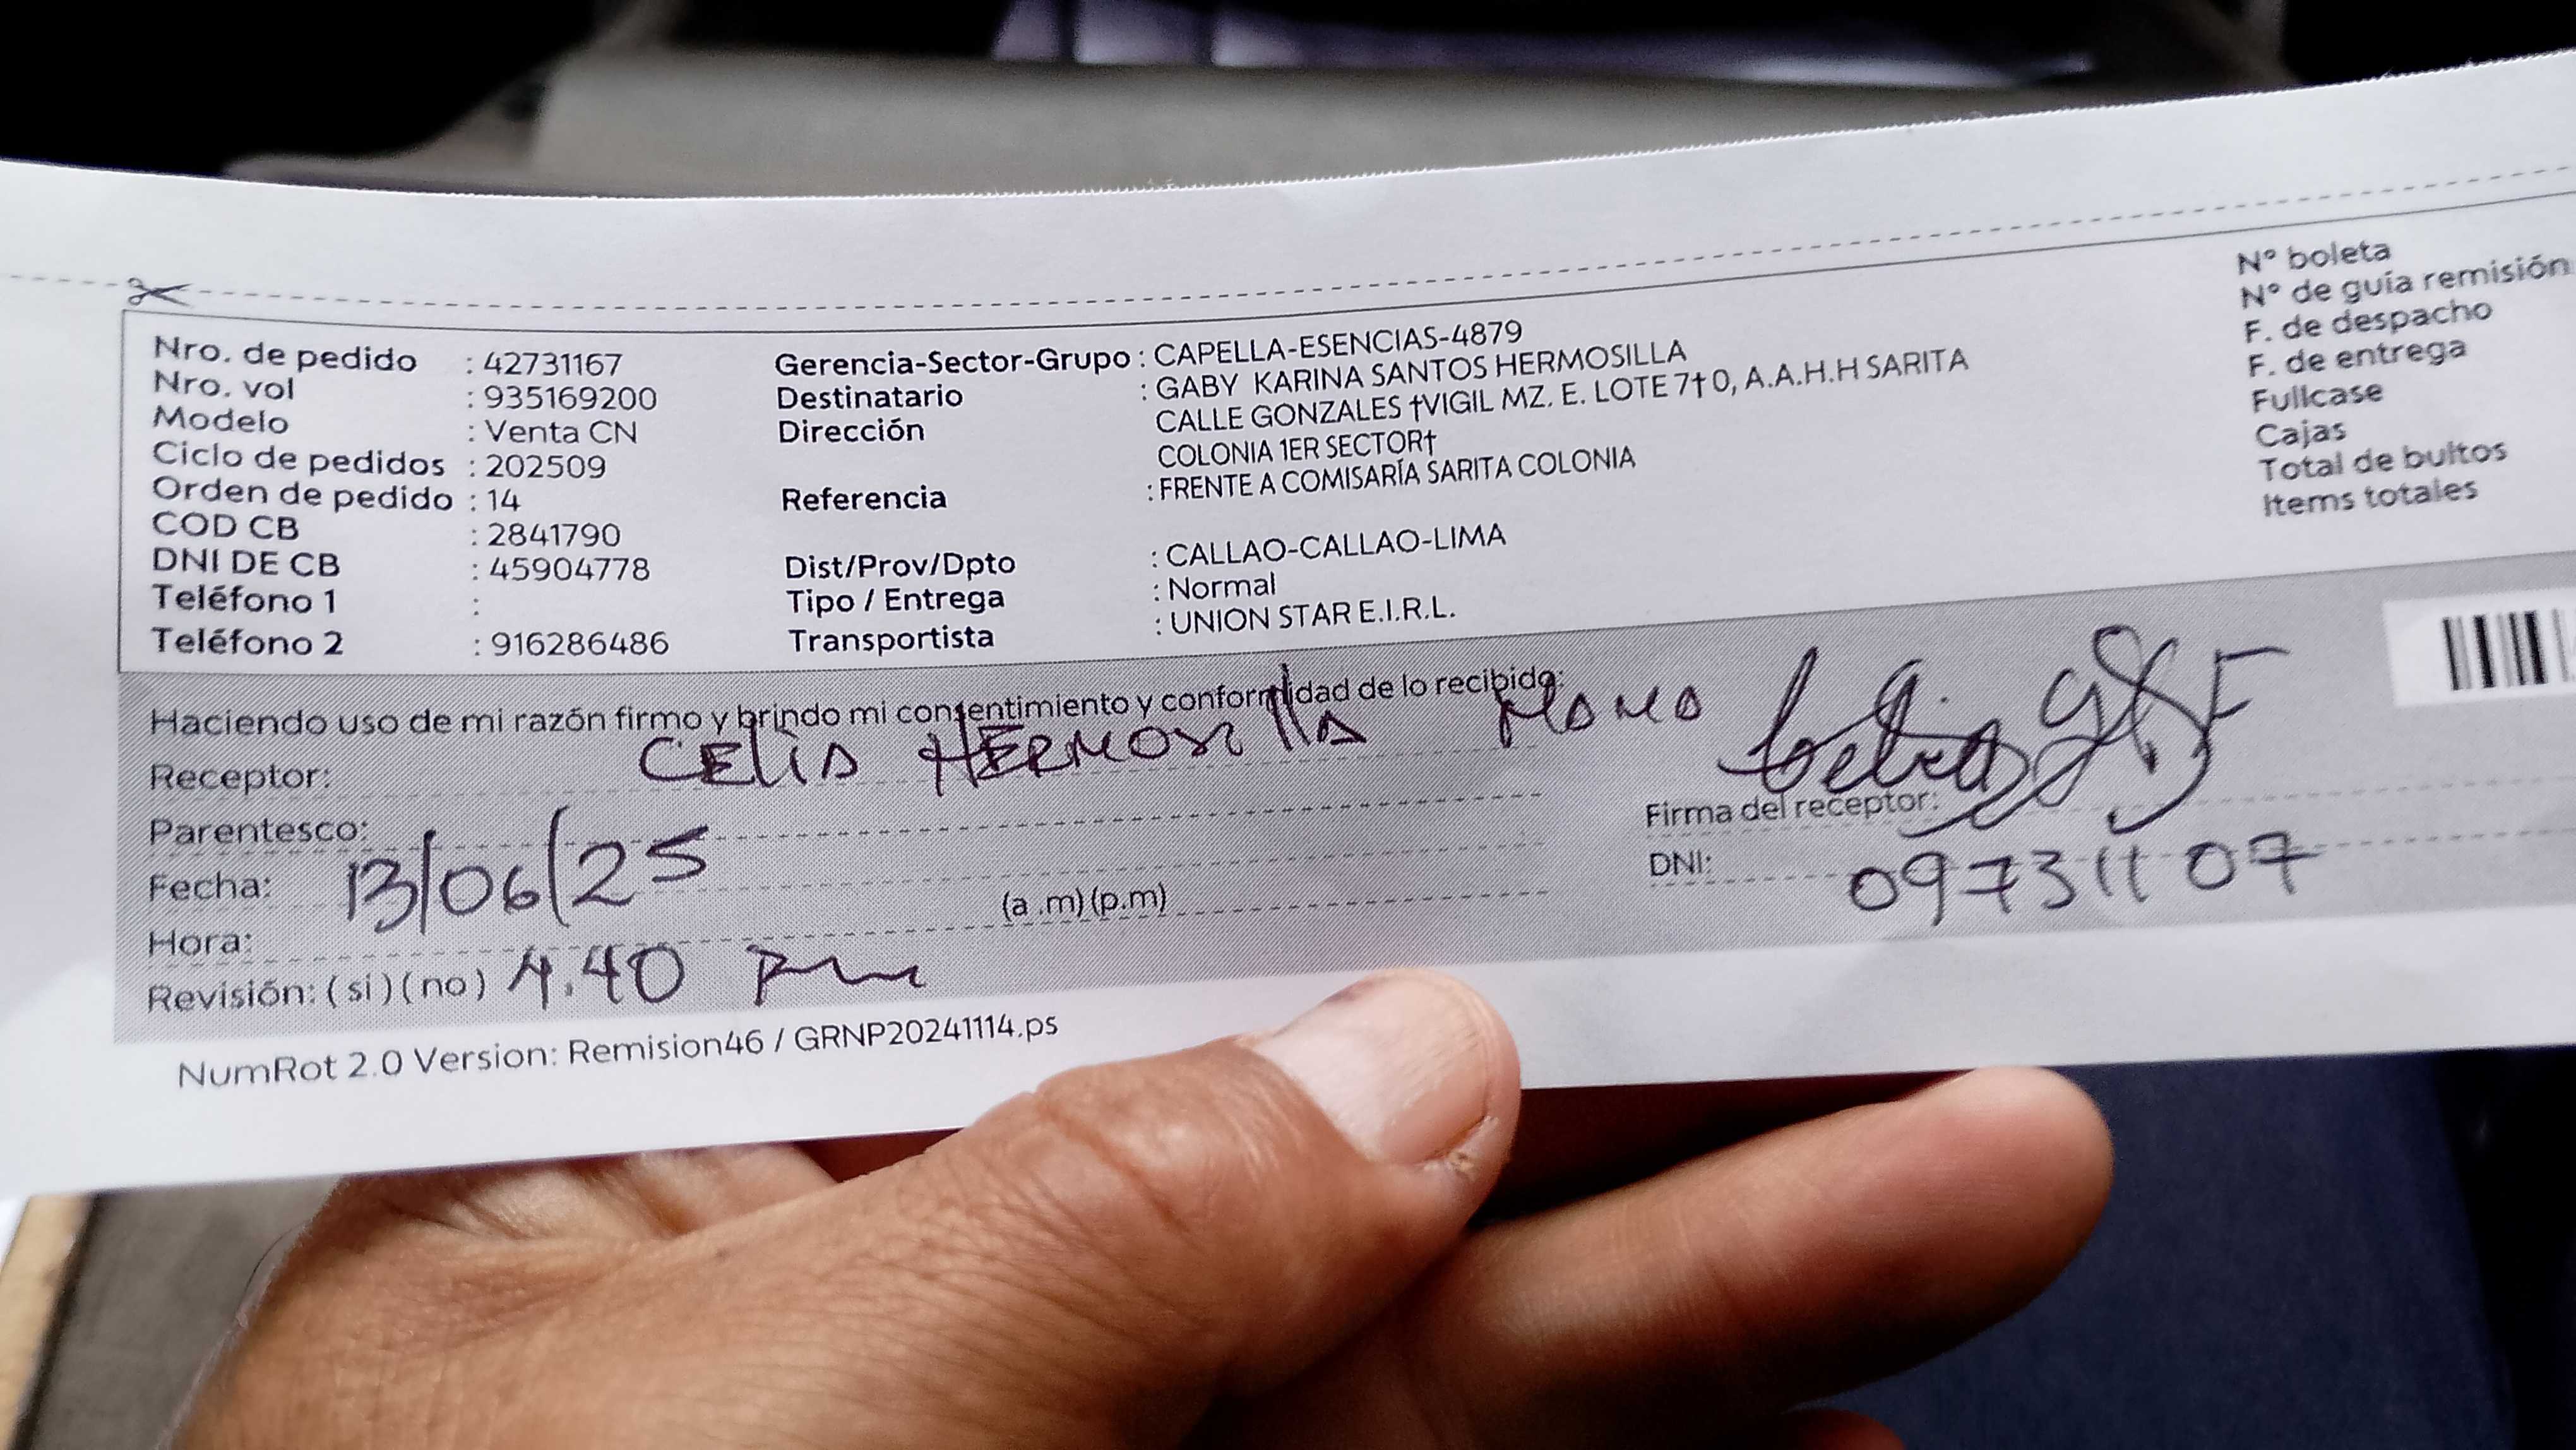 Nro. de pedido : 42731167
Nro. vol : 935169200
Modelo : Venta CN
Ciclo de pedidos : 202509
Orden de pedido : 14
COD CB : 2841790
DNI DE CB : 45904778
Teléfono 1 :
Teléfono 2 : 916286486
Gerencia-Sector-Grupo : CAPELLA-ESENCIAS-4879
Destinatario : GABY KARINA SANTOS HERMOSILLA
Dirección CALLE GONZALES †VIGIL MZ. E. LOTE 7†0, A.A.H.H SARITA
COLONIA 1ER SECTOR†
Referencia : FRENTE A COMISARÍA SARITA COLONIA
Dist/Prov/Dpto : CALLAO-CALLAO-LIMA
Tipo / Entrega : Normal
Transportista : UNION STAR E.I.R.L.
N° boleta
N° de guía remisión
F. de despacho
F. de entrega
Fullcase
Cajas
Total de bultos
Items totales
Haciendo uso de mi razón firmo y brindo mi consentimiento y conformidad de lo recibido:
Receptor: CELIA HERMOSILLA
Parentesco:
Fecha: 13/06/25
Hora: (a .m)(p.m)
Revisión: (si)(no) 4.40 pm
Firma del receptor:
DNI: 09731107
NumRot 2.0 Version: Remision46 / GRNP20241114.ps